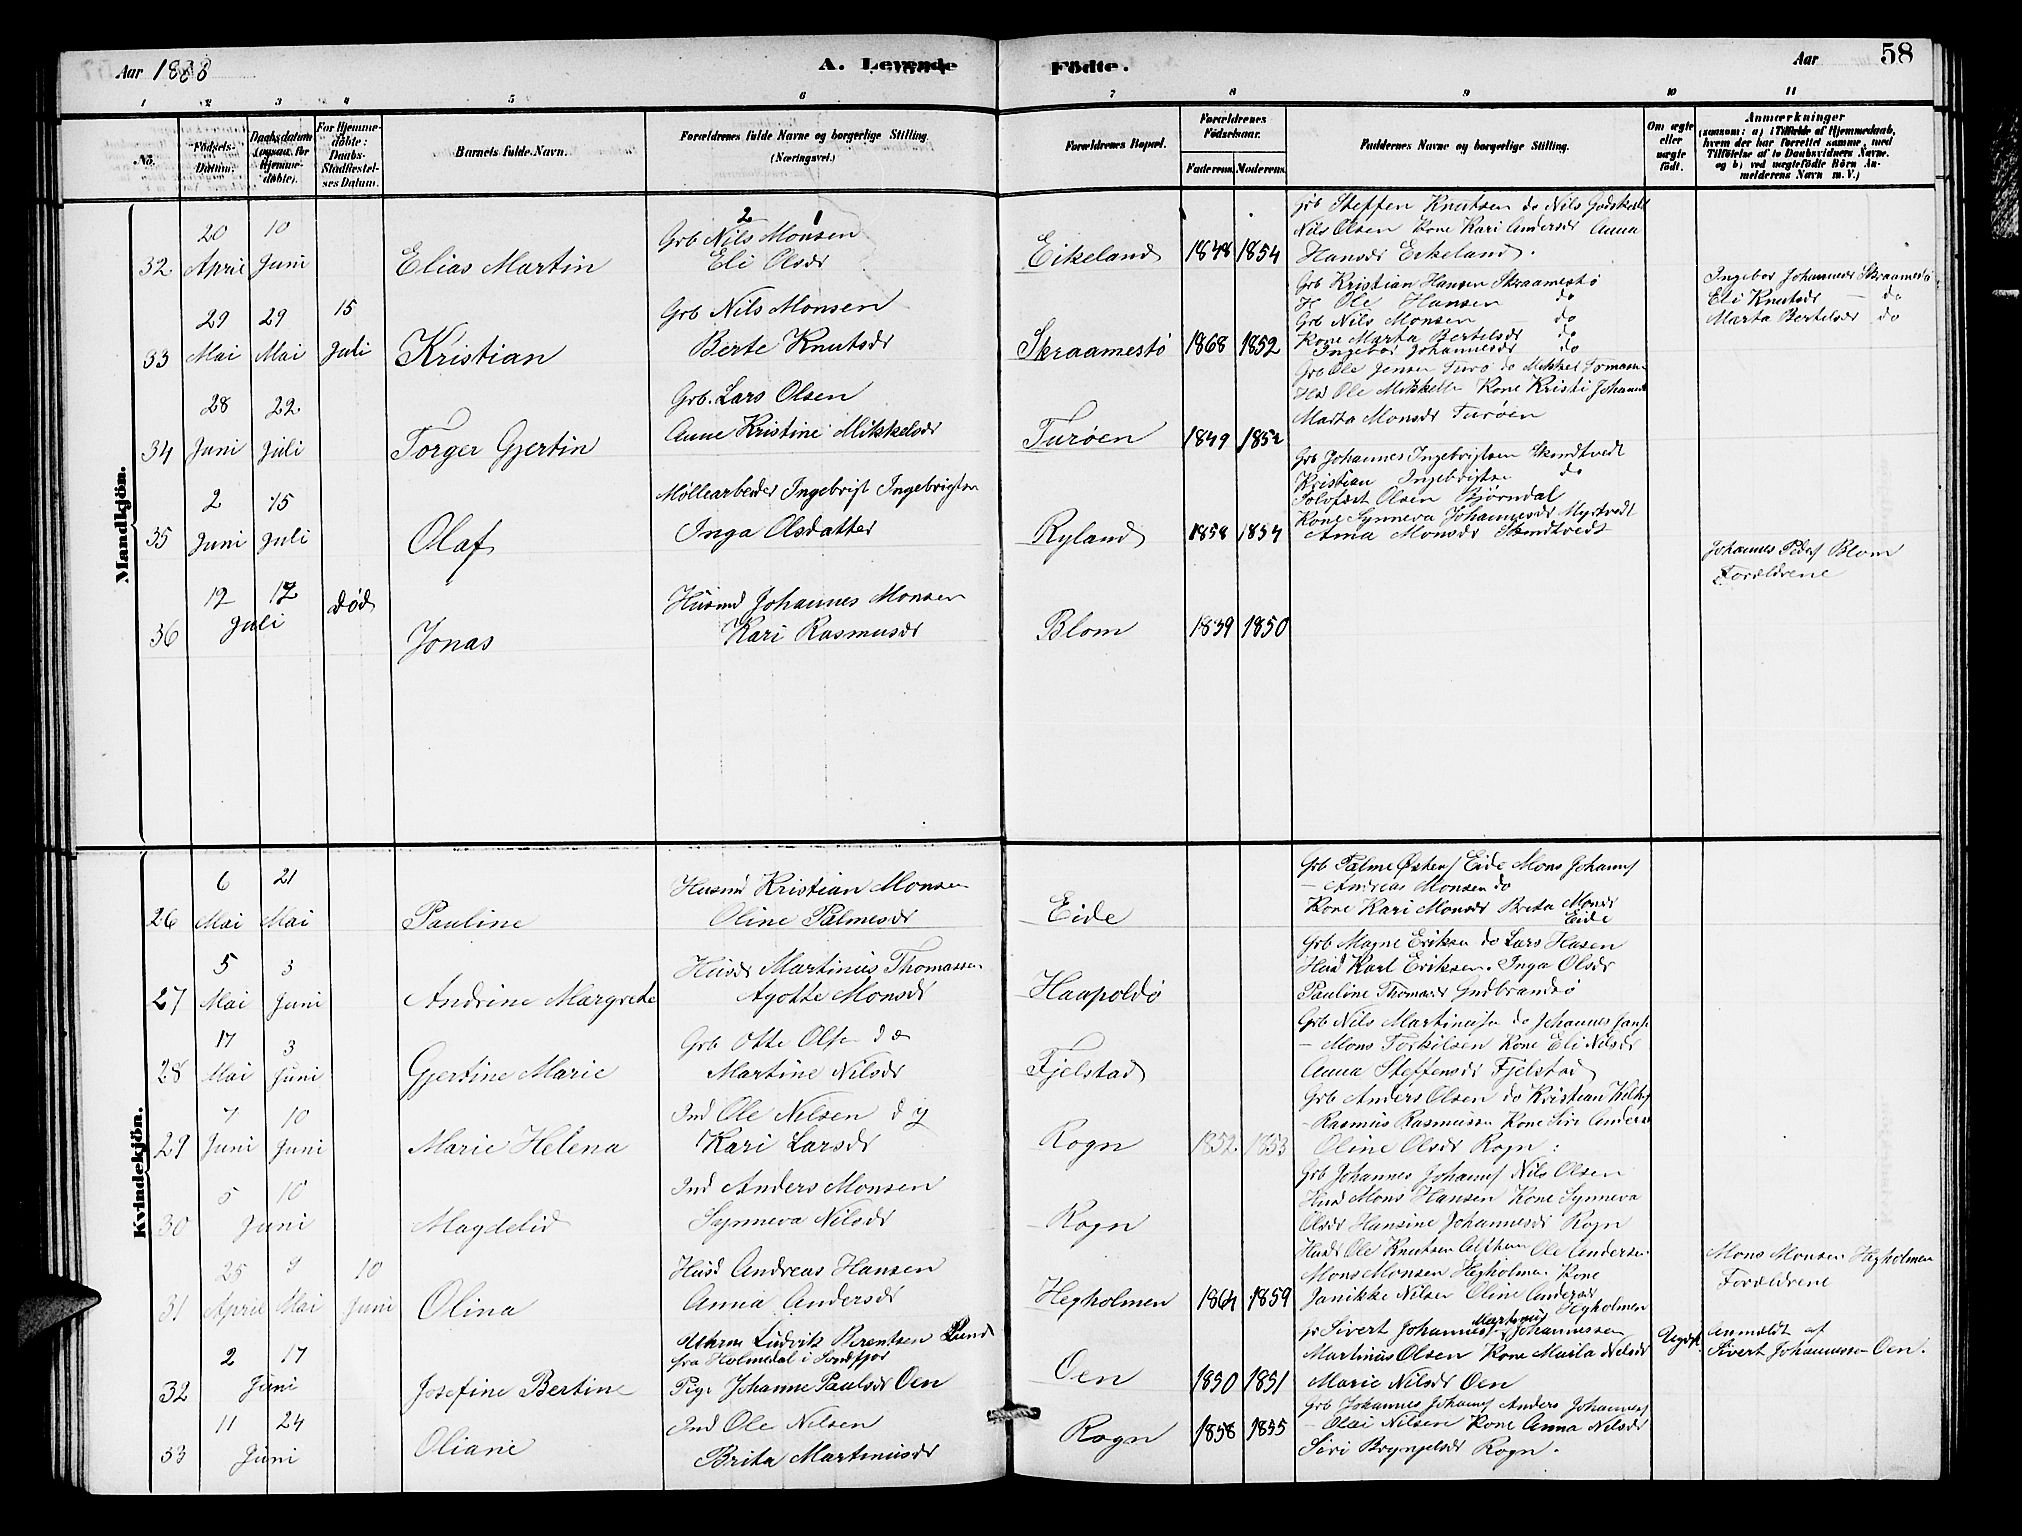 Aar 1888
A. Levende
Födte.
Aar
58
1 2 3 4 5 6 7 8 9 10 11
No.
Födsels-Datum.
Daabsdatum (ogsaa for Hjemmedøbte).
For Hjemmedøbte: Daabs-Stadfæstelses Datum.
Barnets fulde Navn.
Forældrenes fulde Navne og borgerlige Stilling. (Næringsvei.)
Forældrenes Bopæl.
Forældrenes Fødselsaar.
Faderens. Moderens.
Faddernes Navne og borgerlige Stilling.
Om ægte eller uægte født.
Anmærkninger
(saasom: a) i Tilfælde af Hjemmedaab, hvem der har forrettet samme, med Tilføielse af to Daabsvidners Navne, og b) ved uægtefødte Börn Anmelderens Navn m. V.)
Mandkjön.
20 10
32 April Juni Elias Martin
2 1
Grb Nils Monsen
Eli Olsdr
Eikeland 1848 1854
Grb Steffen Knutsen do Nils Godskalk
Nils Olsen Kone Kari Andersdr Anna
Hansdr Eikeland.
29 29 15
33 Mai Mai Juli Kristian
Grb Nils Monsen
Berte Knutsdr
Skraamestø 1868 1852
Grb Kristian Hansen Skraamestø
H Ole Hansen do
Grb Nils Monsen do
Kone Marta Bertelsdr do
Ingebor Johannesdr do
Ingebor Johannesdr Skraamestø
Eli Knutsdr — do
Marta Bertelsdr do
28 22
34 Juni Juli Torger Gjertin
Grb. Lars Olsen
Anne Kristine Mikkelsdr
Turøen 1849 1852
Grb Ole Jensen Turø do Mikkel Tomass
Hsd Ole Mikkels Kone Kristi Johann
Marta Monsdr Turøen
2 15
35 Juni Juli Olaf
Møllearbeider Ingebrigt Ingebrigtsn
Inga Olsdatter
Ryland 1858 1854
Grb Johannes Ingebrigtsen Skindtvedt
Kristian Ingebrigtsn do
Olsen Bjørndal
Kone Synneva Johannesdr Myrtvedt
Anna Monsdr Skindtvedt
12 12
36 Juli død Jonas
Husmd Johannes Monsen
Kari Rasmusdr
Blom 1839 1850
Johannes Peders Blom
Forældrene
Kvindekjön.
6 21
26 Mai Mai Pauline
Husmd Kristian Monsen
Oline Palmesdr
Eide
Grb Palme Østens Eide Mons Johans
— Andreas Monsen do
Kone Kari Monsdr Brita Monsdr
Eide
5 3
27 Mai Juni Andrine Margrete
Husdr Martinus Thomassen
Agotte Monsdr
Haapoldø
Grb Magne Eriksen do Lars Hasen
Husd Karl Eriksen. Inga Olsdr
Pauline Thomasdr Gudbrandsø
17 3
28 Mai Juni Gjertine Marie
Grb Otte Olsen
Martine Nilsdr
Fjelstad
Grb Nils Martinussen do Johannes Hans
— Mons Torkilsen Kone Eli Nilsdr
Anna Steffensdr Fjelstad
7 10
29 Juni Juni Marie Helena
Ind Ole Nilsen d y
Kari Larsdr
Rogn 1852 1853
Grb Anders Olsen do Kristian
- Rasmus Rasmussen Kone Siri Andersd
Oline Olsdr Rogn:
5 10
30 Juni Magdelid
Ind Anders Monsen
Synneva Nilsdr
Rogn
Grb Johannes Johans Nils Olsen
Husd Mons Hansen Kone Synneva
Olsdr Hansine Johannesdr Rogn
25 9 10
31 April Mai Juni Olina
Husd Andreas Hansen
Anna Andersdr
Hegholmen 1864 1859
Husd Ole Knutsen Ole Andersen
Mons Monsen Hegholmen Kone
Janikke Nilsen Oline Andersdr
Hegholmen
Mons Monsen Hegholmen
Forældrene
2 17
32 Juni Josefine Bertine
Ludvik Berentsen Lund
fra Holmedal i Søndfjor
Pige Johanne Paulsdr Oen
Oen 1850 1851
Gr Sivert Johannes Martinus Johannessen
Martinus Olsen Kone Marta Nilsdr
Marie Nilsdr Oen
Uægte
Anmeldt af
Sivert Johannesen Oen.
11 24
33 Juni Oliane
Ind Ole Nilsen
Brita Martinusdr
Rogn 1858 1855
Grb Johannes Johans Anders Johannes
— Olai Nilsen Kone Anna Nilsdr
Siri Brynjelsdr Rogn.